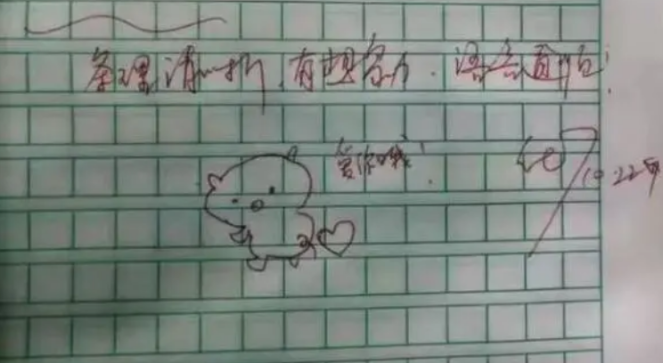 条理清晰,有想象力.语言简洁!
爱你哦!
10.22号